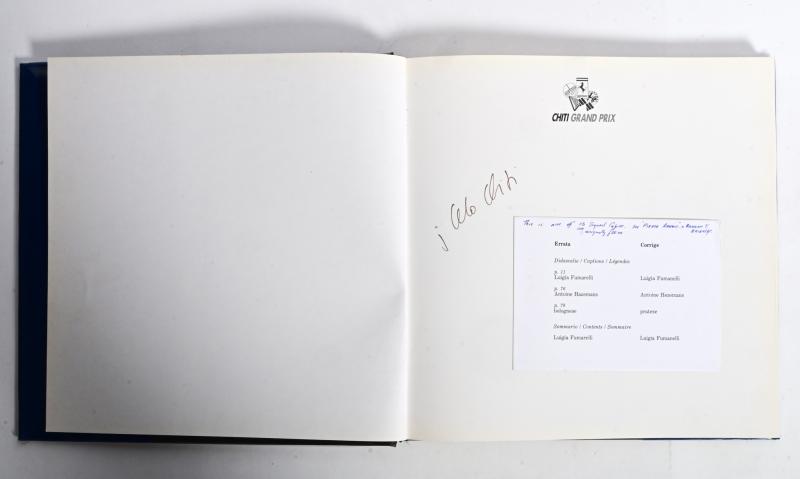 CHITI GRAND PRIX
Chiti
This is one of
Errata Corrige
Didascalie / Captions / Légendes
p. 11
Luigia Fumarelli Luigia Fumanelli
p. 76
Antoine Hazemans Antoine Hezemans
p. 78
bolognese pratese
Sommario / Contents / Sommaire
Luigia Fumarelli Luigia Fumanelli